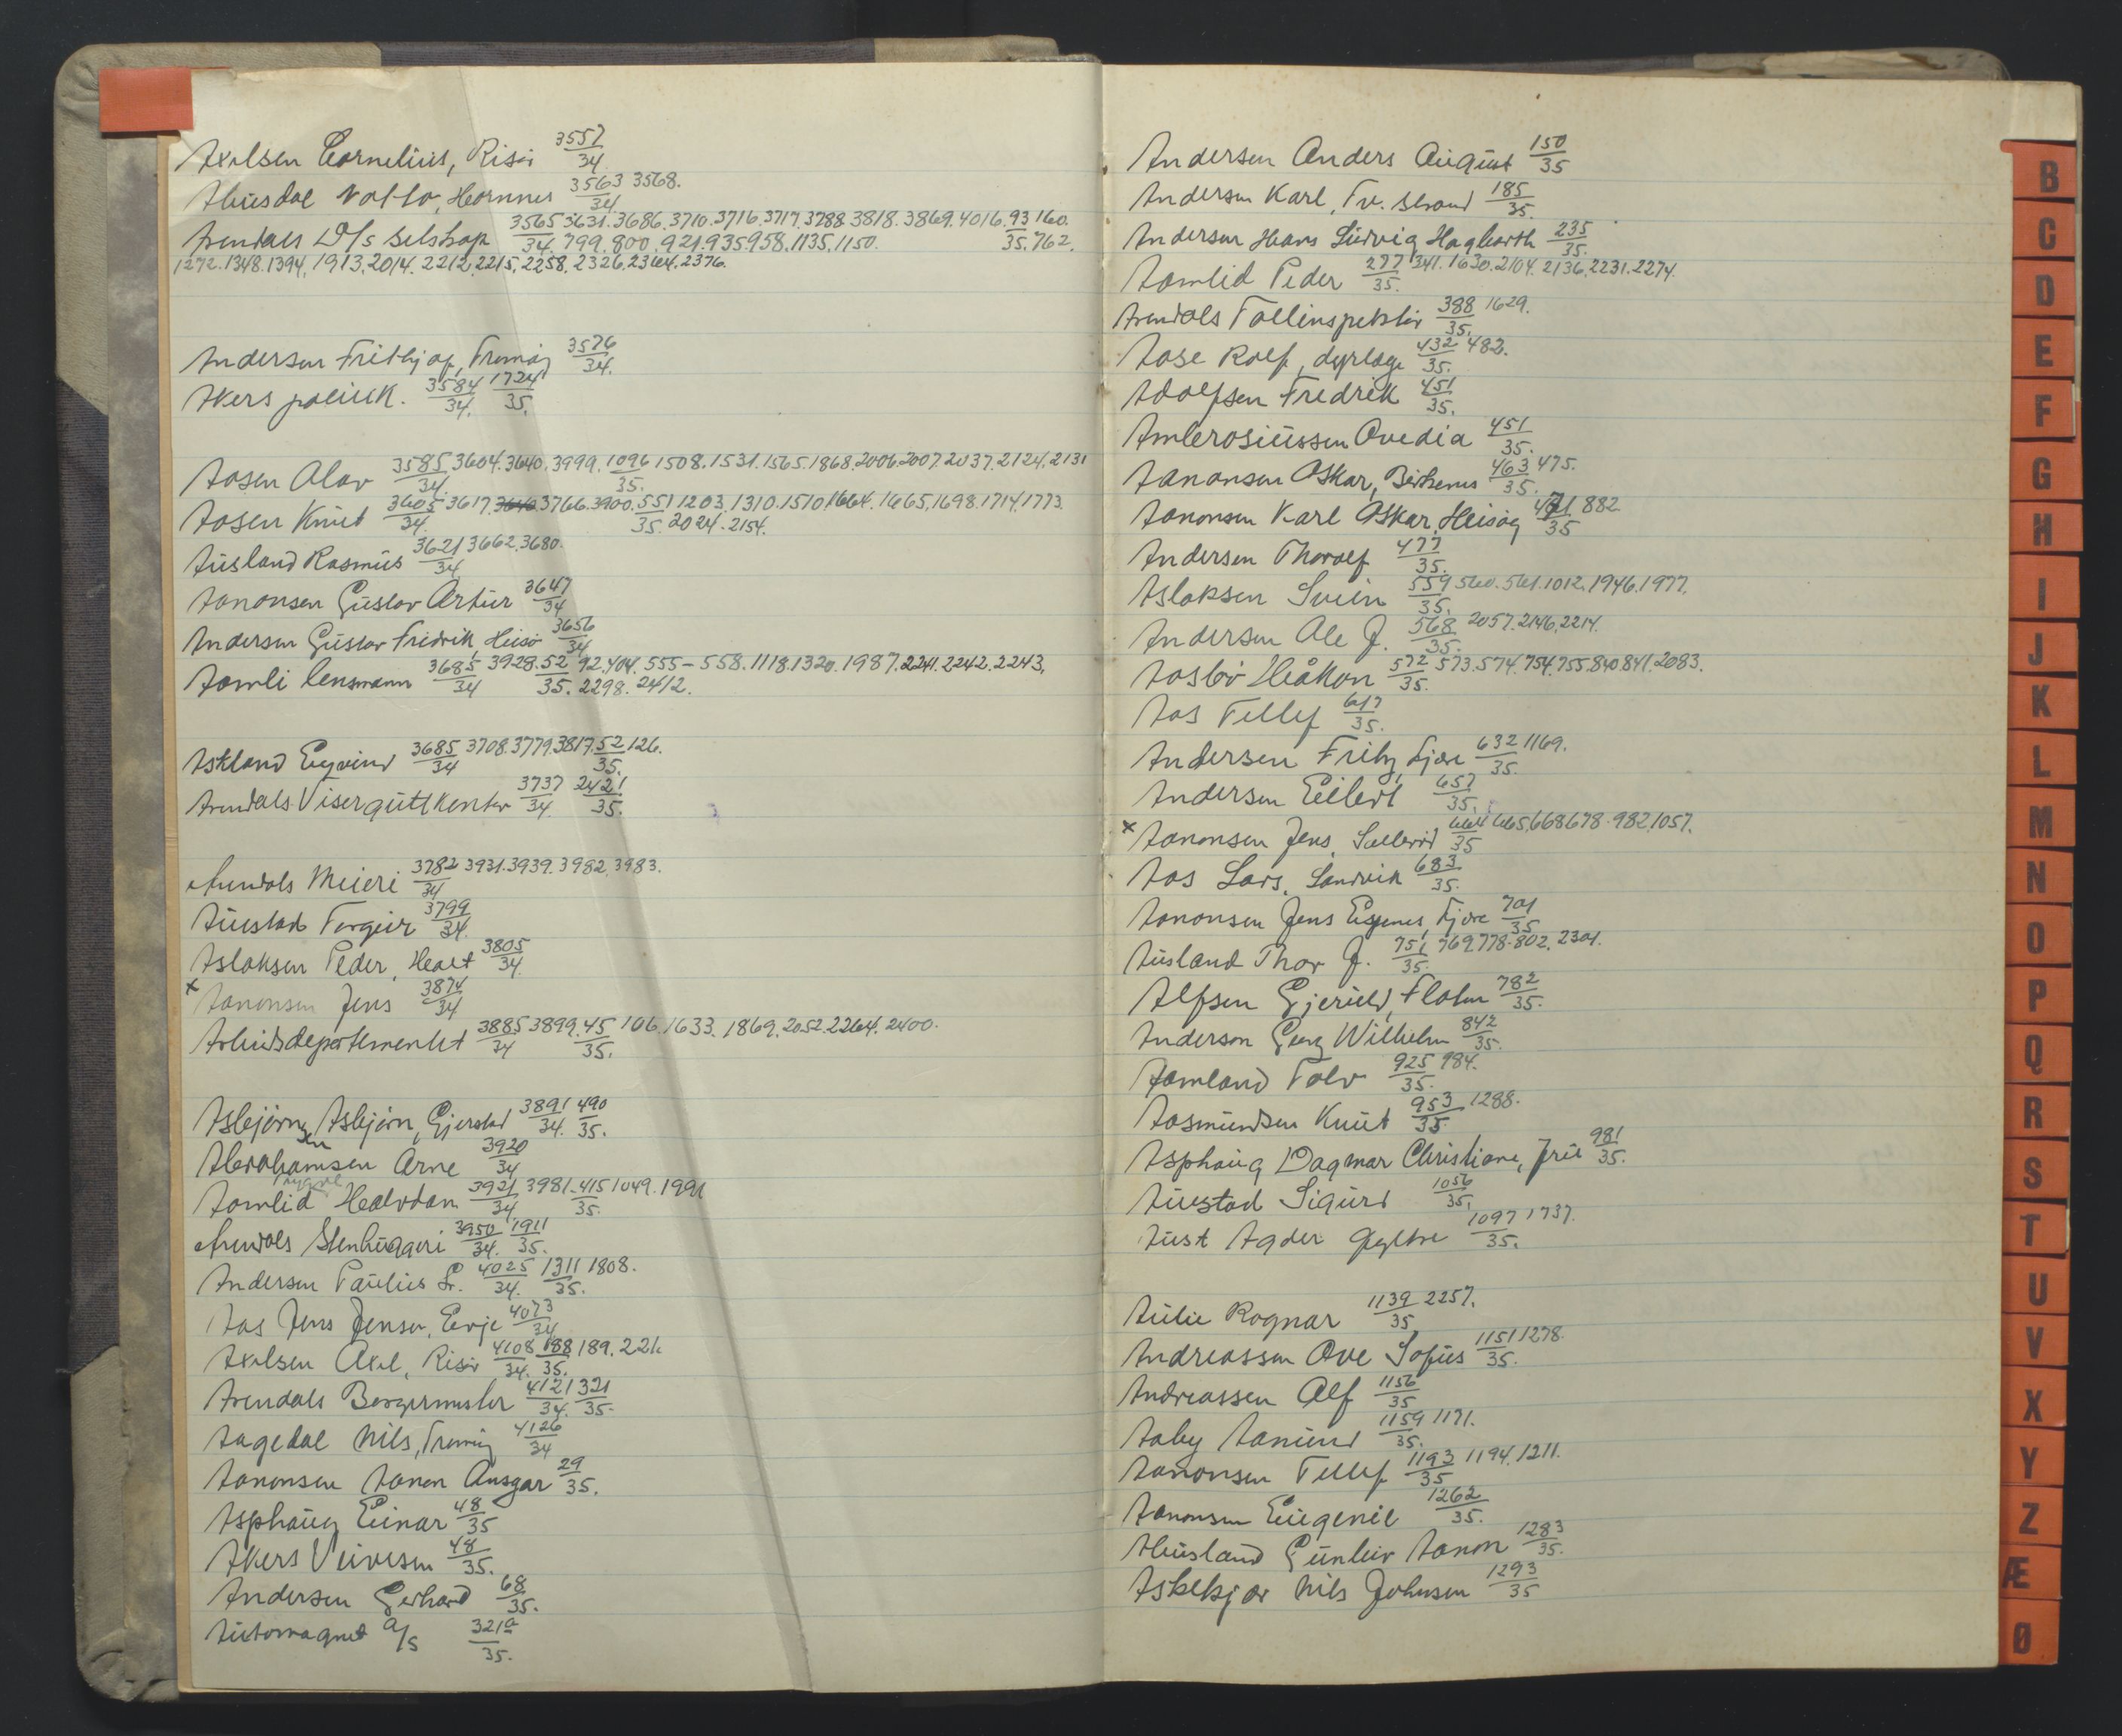 Axelsen Cornelius, Risør 3557/34
3563/34 3568.
Arendals D/s selskap 3565/34 3631.3686.3710.3716.3717.3788 3818.3869.4016.93/35 160.
799.800.921.935958.1135.1150. 762.
1272.1348.1394.1913.2014.2212.2215.2258.2326.2364.2376.
Andersen Frithjof, Tromøy 3576/34.
Akers politik. 3584/34. 1724/35.
Aasen Olav 3585/34. 3604.3640.3999.1096/35. 1508.1531.1565.1868.2006.2007.2037.2124.2131
Aasen Knut 3605/34. 3617. 3766.3900.551/35. 1203.1310.1510.1664.1665.1698.1714.1773.
2024.2154.
Ausland Rasmus 3621/34 3662.3680.
Aanonsen Gustav Artur 3647/34
Andersen Gustav Fredrik, Hisøi 3656/34
Aamli lensmann 3685/34 3928.52/35. 92.404.555-558.1118.1320.1987.2241.2242.2243.
2298.2412.
Askland Eyvind 3685/34 3708.3779.3817.52/35. 126.
Arendals Viserguttkontor 3737/34. 2421/35.
Arendals Meieri 3782/34 3931.3939.3982.3983.
Austad Torgeir 3799/34.
Aslaksen Peder, Holt 3805/34.
x Aanonsen Jens 3874/34
Arbeidsdepartementet 3885/34 3899.45/35. 106.1633.1869.2052.2264.2400.
Asbjørnsen Asbjørn, Gjerstad 3891/34. 490/35.
Abrahamsen Arne 3920/34
Aamlid Halvdan 3921/34 3981.415/35. 1049.1991
Arendals Stenhuggeri 3950/34. 1911/35.
Andersen Paulus Sr. 4025/34. 1311/35. 1808.
Aas Jens Jensen, Evje 4073/34
Axelsen Axel, Risør 4108/34. 188/35. 189.221.
Arendals Borgermester 4121/34. 321/35.
Aagedal Nils, Tromøy 4126/34
Aanonsen Aanon Ansgar 29/35.
Asphaug Einar 48/35
Akers Veivesen 48/35.
Andersen Gerhard 68/35.
Automagnet A/S 321a/35.
Andersen Anders August 150/35
Andersen Karl, Tv. strand 185/35.
Andersen Hans Ludvig Hagbarth 235/35.
Aamlid Peder 277/35. 341.1630.2104.2136.2231.2274.
Arendals Tollinspektør 388/35. 1629.
Aase Rolf, dyrlæge 432/35. 482.
Adolfsen Fredrik 451/35.
Ambrosiussen Ovedia 451/35.
Aanonsen Oskar, Birkenes 463/35. 475.
Aanonsen Karl Oskar, Hisøy 471/35 882
Andersen Thorolf 477/35.
Aslaksen Svein 559/35. 560.561.1012.1946.1977.
Andersen Ole J. 568/35. 2057.2146.2214.
Aasbø Håkon 572/35. 573.574.754.755.840.841.2083.
Aas Tellef 617/35.
Andersen Fritz, Fjære 632/35. 1169.
Andersen Eilert 657/35.
x Aanonsen Jens, 664/35 665.668 678.982.1057.
Aas Lars, Sandvik 683/35.
Aanonsen Jens Eugenes, Fjære 701/35
Ausland Thor J. 751/35. 769.778.802.2301.
Alfsen Gjeruld, Flaten 782/35.
Anderson Georg Wilhelm 842/35.
Aamland Tolv 925/35. 984.
Aasmundsen Knut 953/35 1288.
Asphaug Dagmar Christiane, fru 981/35.
Austad Sigurd 1056/35.
Aust Agder fylke 1097/35. 1737.
Aulie Ragnar 1139/35 2257.
Andreassen Ove Sofus 1151/35. 1278.
Andreassen Alf 1156/35
Aaby Aanund 1159/35. 1171.
Aanonsen Tellef 1193/35 1194.1211.
Aanonsen Eugenie 1262/35.
Abusland Gunleiv Aanon 1283/35.
Askekjær Nils Johnsen 1293/35
B
C
D
E
F
G
H
I
J
K
L
M
N
O
P
Q
R
S
T
U
V
X
Y
Z
Æ
Ø